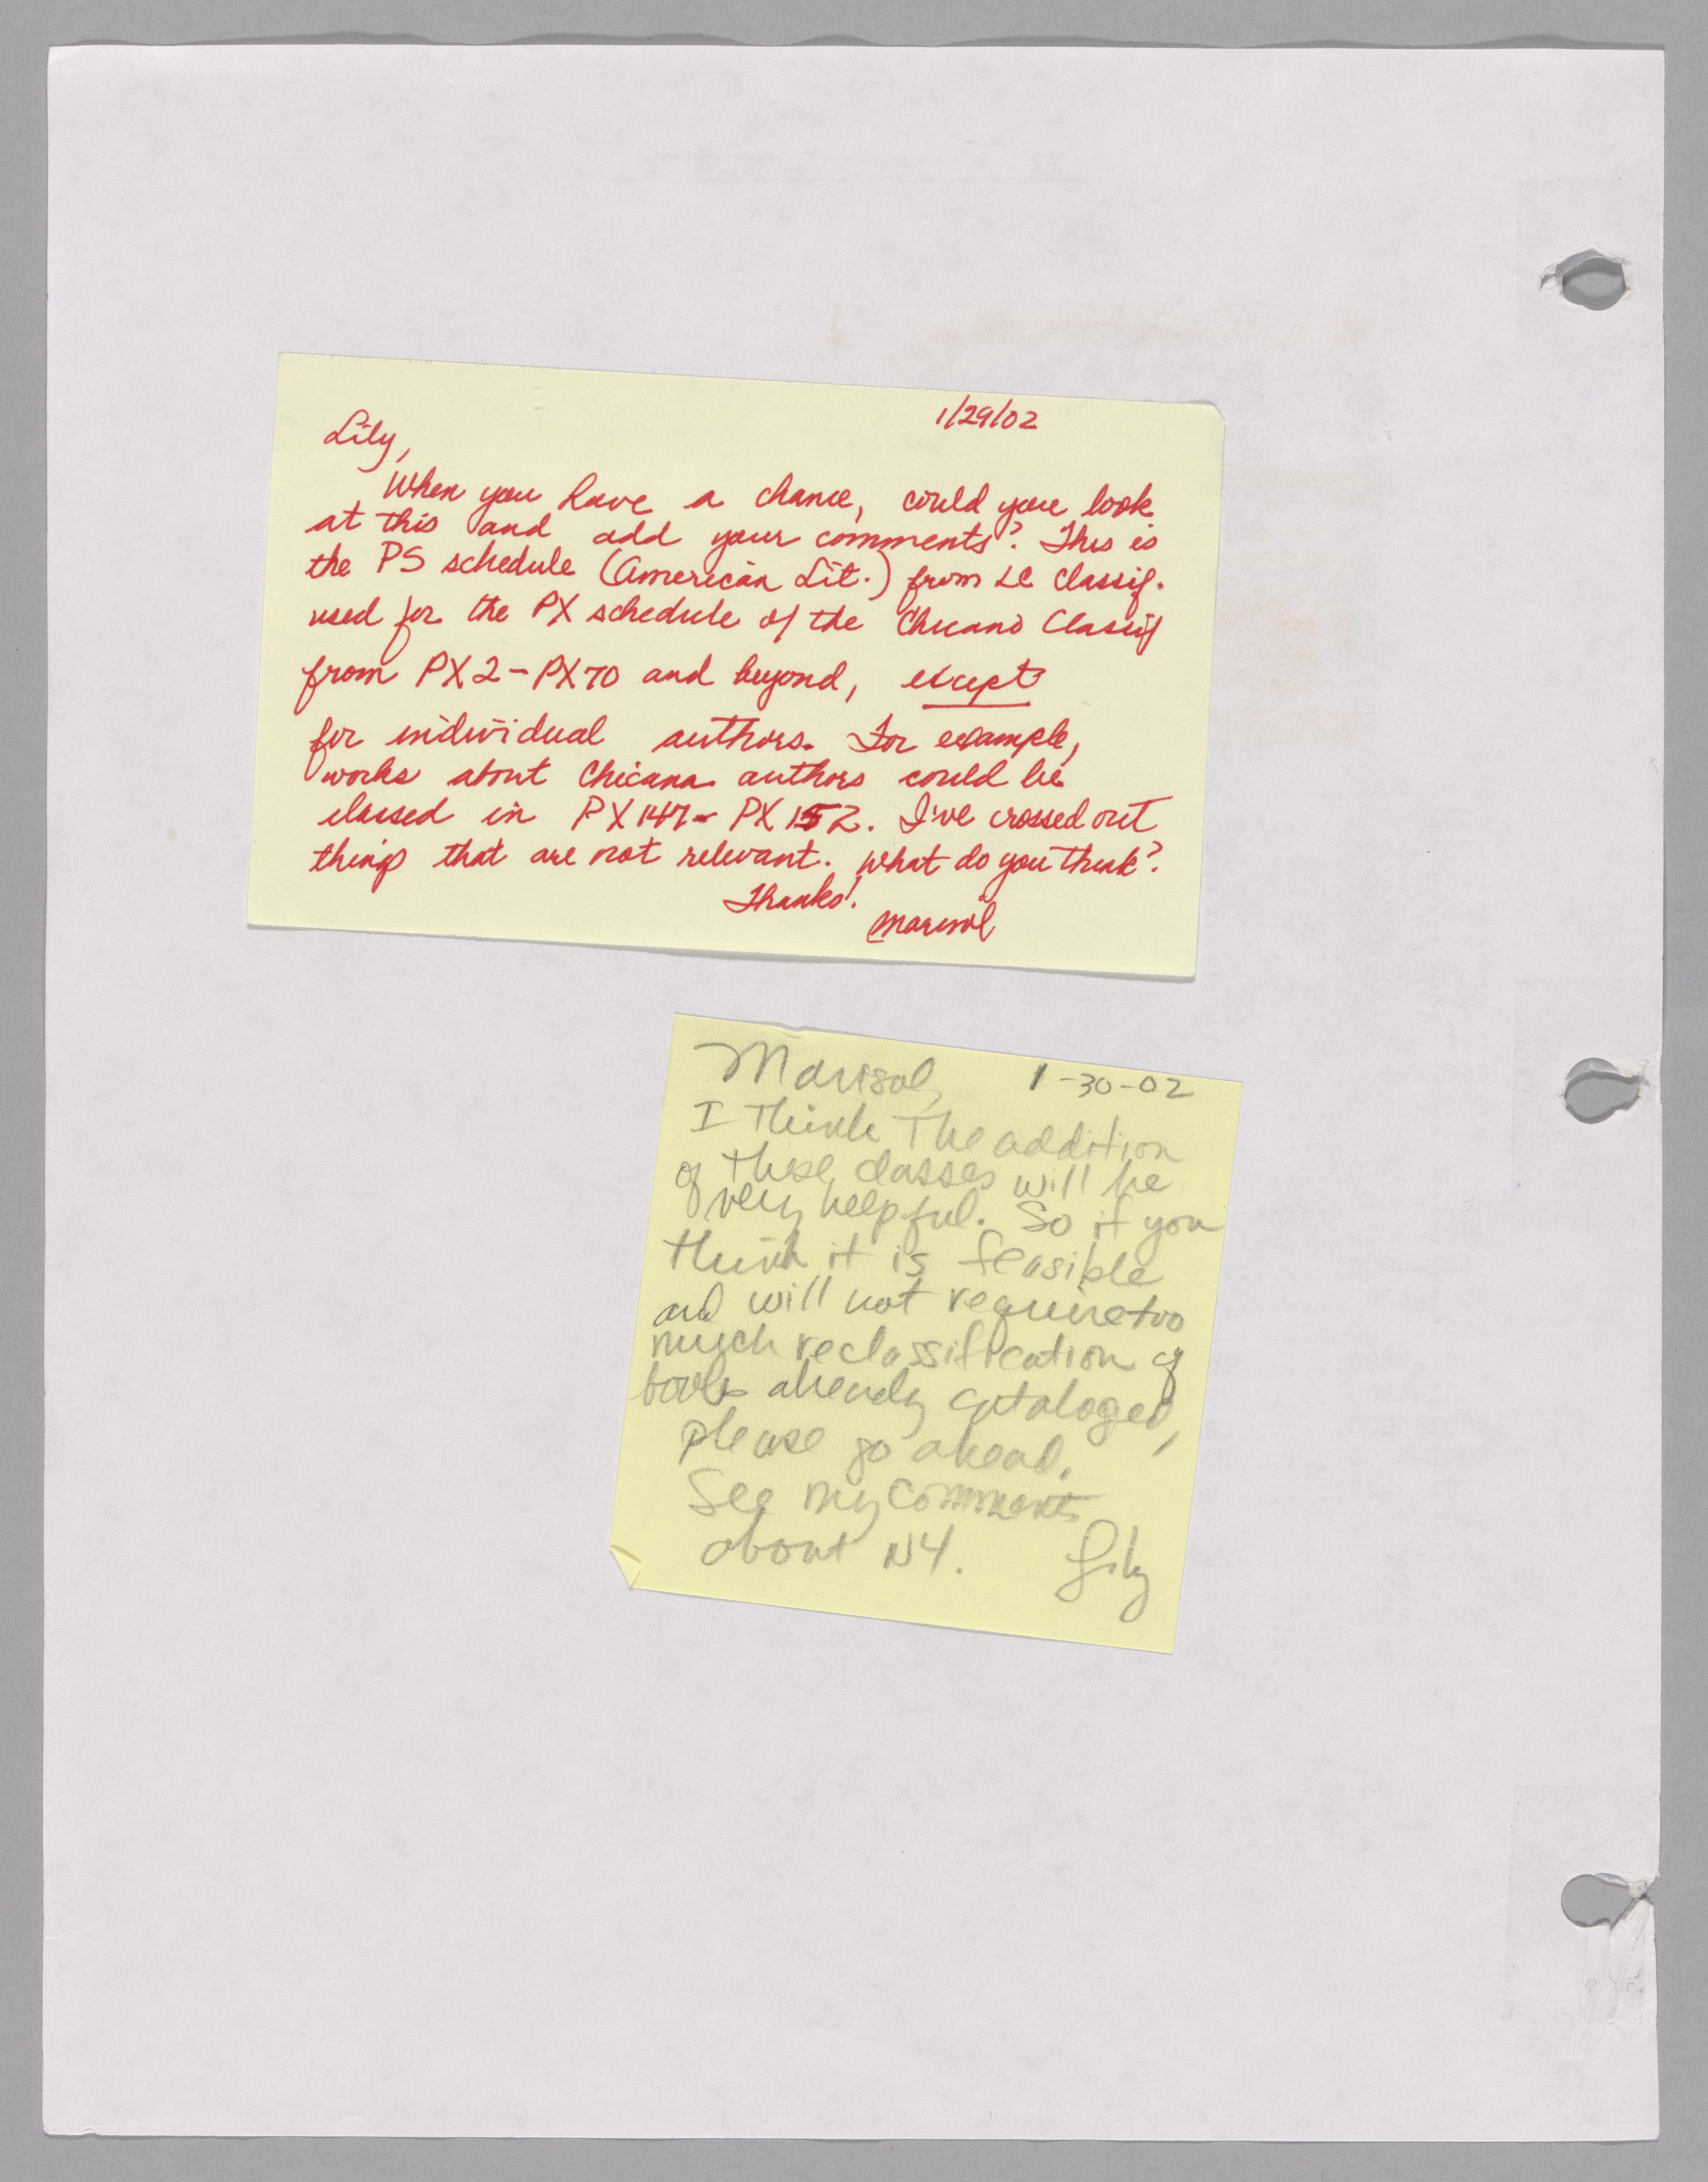 1/29/02
Lily,
When you have a chance, could you look
at this and add your comments? This is
the PS schedule (American Lit.) from LC Classif.
used for the PX schedule of the Chicano Classif
from PX2-PX70 and beyond, except
for individual authors. For example,
works about Chicana authors could be
classed in PX147- PX152. I've crossed out
things that are not relevant. What do you think?
Thanks!
Marisol
Marisol, 1-30-02
I think the addition
of these classes will be
very helpful. So if you
think it is feasible
and will not require too
much reclassification of
books already cataloged,
please go ahead.
See my comments
about NY. Lily